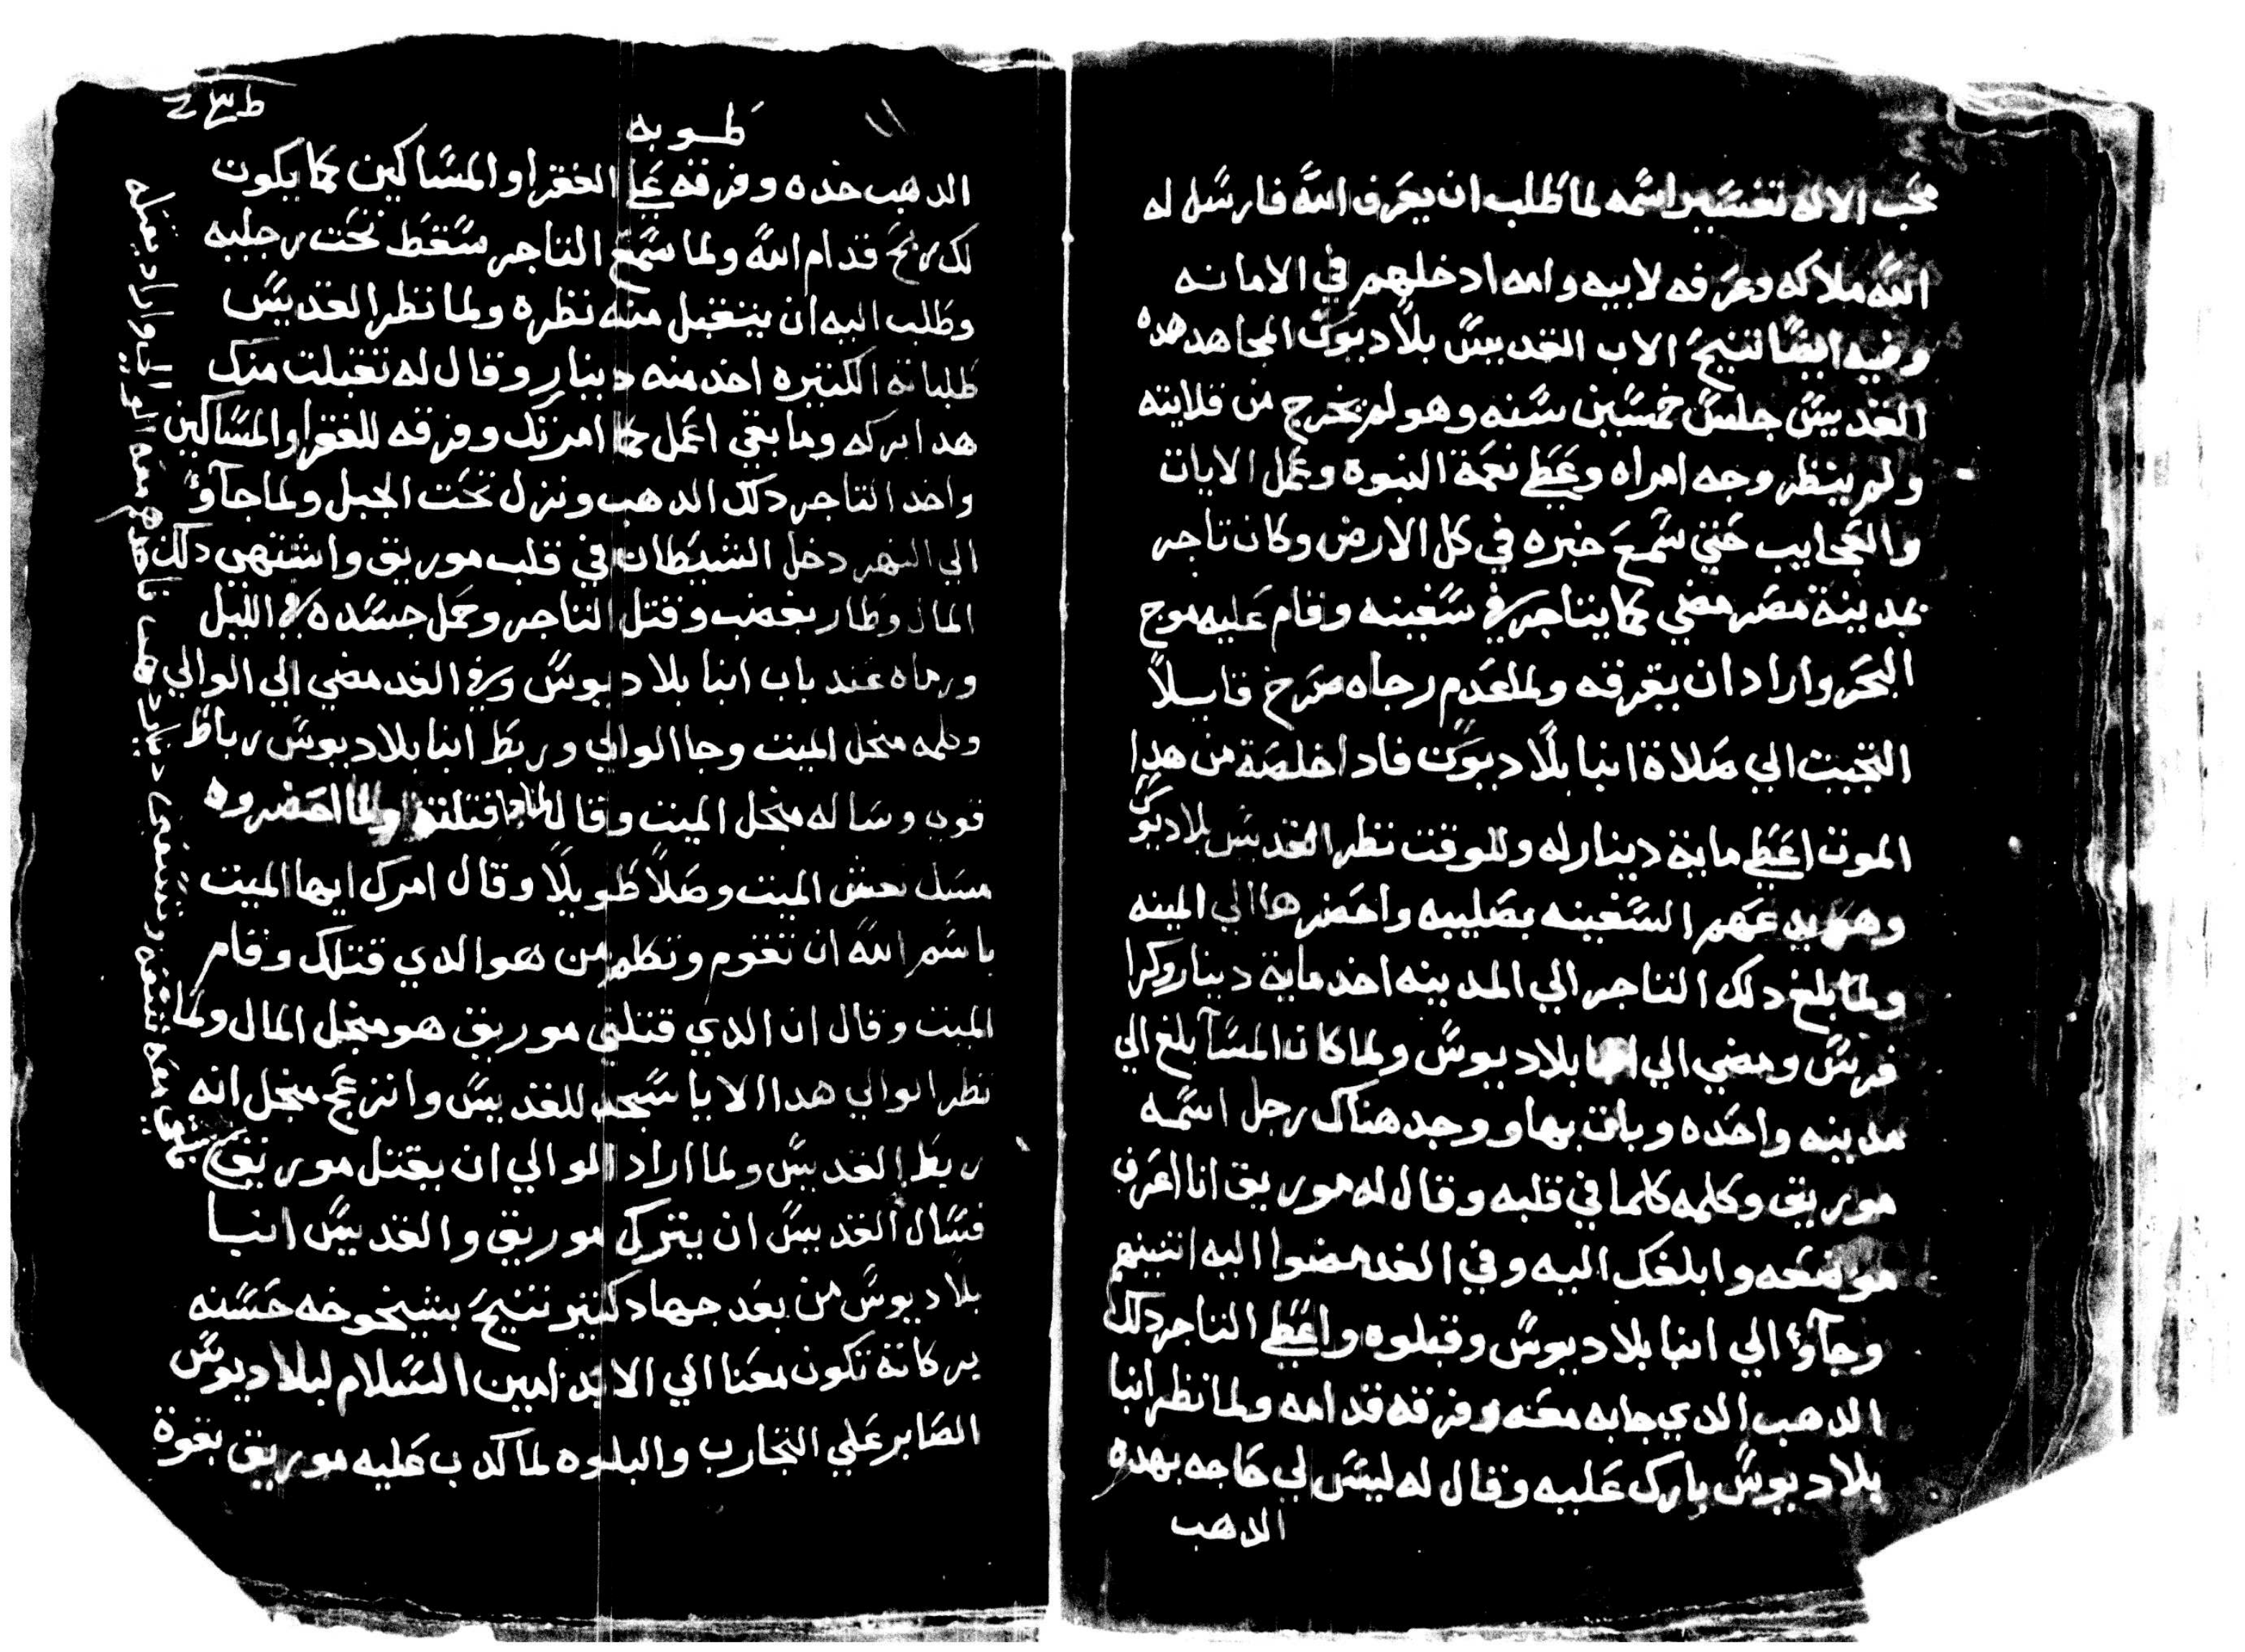 محب الاله تفسير اسمه لما طلب ان يعرف الله فارسل له
الله ملاكه وعرفه لابيه وامه ادخلهم في الامانه
وفيه ايضا تنيح الاب القديس بلاديوس المجاهد هده
القديس جلس خمسين سنه وهو لم يخرج من قلايته
ولم ينظر وجه امراه وعطي نعمة النبوة وعمل الايات
والعجايب حتي سمع خبره في كل الارض وكان تاجر
بمدينة مصر مضي كما يتاجر في سفينه وقام عليه موج
البحر واراد ان يغرقه ولما عدم رجاه صرخ قايلا
التجيت الي صلاة انبا بلاديوس فادا خلصة من هدا
الموت اعطي ماية دينار له وللوقت نظر القديس بلاديوس
وهو يدعهم السفينه بصليبه واحضرها الي المينه
ولما بلغ دلك التاجر الي المدينه اخد ماية دينار وكرا
فرس ومضي الي انبا بلاديوس ولما كان المسآ بلغ الي
مدينه واحده وبات بها ووجد هناك رجل اسمه
موريق وكلمه كلما في قلبه وقال له موريق انا اعرف
موضعه وابلغك اليه وفي الغد مضوا اليه اتنينهم
وجآؤ الي انبا بلاديوس وقبلوه واعطي التاجر دلك
الدهب الدي جابه معه وفرقه قدامه ولما نظر انبا
بلاديوس بارك عليه وقال له ليس لي حاجه بهده
الدهب
طوبه
الدهب خده وفرقه علي الفقرا والمساكين كما يكون
لك ربح قدام الله ولما سمع التاجر سقط تحت رجليه
وطلب اليه ان يتقبل منه نظره ولما نظر القديس
طلباته الكتيره اخد منه دينار وقال له تقبلت منك
هدا بركه وما بقي اعمل كما امرتك وفرقه للفقرا والمساكين
واخد التاجر دلك الدهب ونزل تحت الجبل ولما جآؤ
الي النهر دخل الشيطان في قلب موريق واشتهي دلك
المال وطار بغضب وقتل التاجر وحمل جسده في الليل
ورماه عند باب انبا بلاديوس وفي الغد مضي الي الوالي
وكلمه منجل الميت وجا الوالي وربط انبا بلاديوس رباط
قوي وساله منجل الميت وقال لماذا قتلته ولما احضروه
مسك نعش الميت وصلا طويلا وقال امرك ايها الميت
باسم الله ان تقوم وتكلم من هو الدي قتلك وقام
الميت وقال ان الدي قتلني موريق هو منجل المال ولما
نظر الوالي هدا الايا سجد للقديس وانزعج منجل انه
ربط القديس ولما اراد الوالي ان يقتل موريق
فسال القديس ان يترك موريق والقديس انبا
بلاديوس من بعد جهاد كتير تنيح بشيخوخه حسنه
بركاته تكون معنا الي الابد امين السلام لبلاديوس
الصابر علي التجارب والبلوه لما كدب عليه موريق بقوة